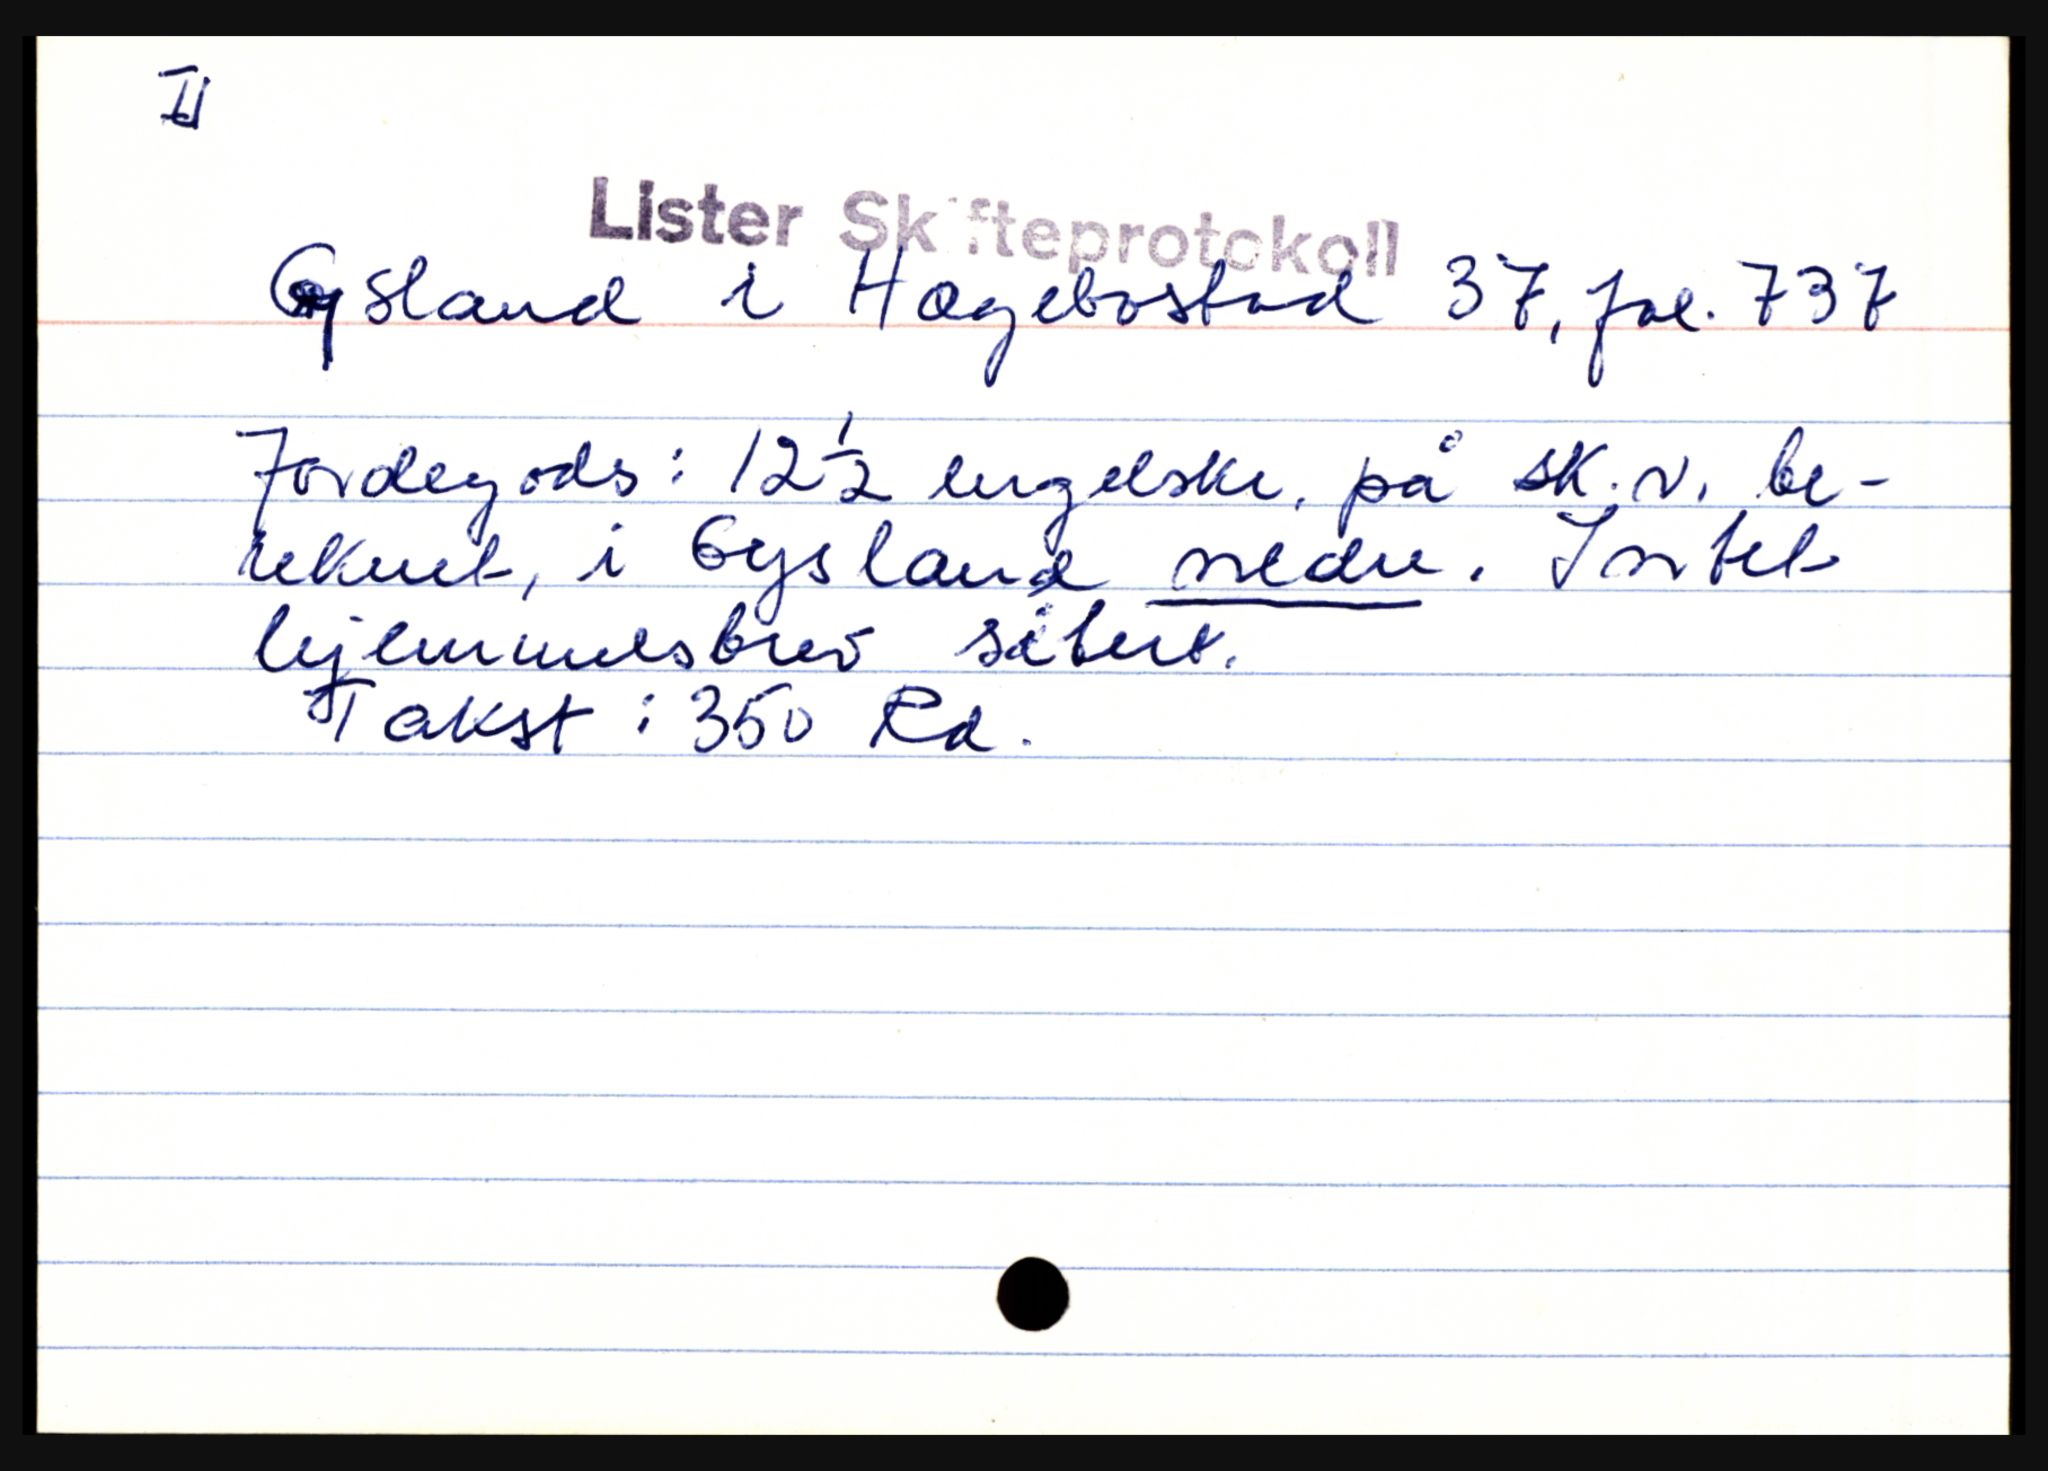 II
Lister Skifteprotokoll
Gysland i Hægebostad 37, fol. 737
Jordegods: 12½ engelske, på sk. v. be-
reknet, i Gysland nedre. Intet
hjemmelsbrev såtent.
Takst: 350 Rd.